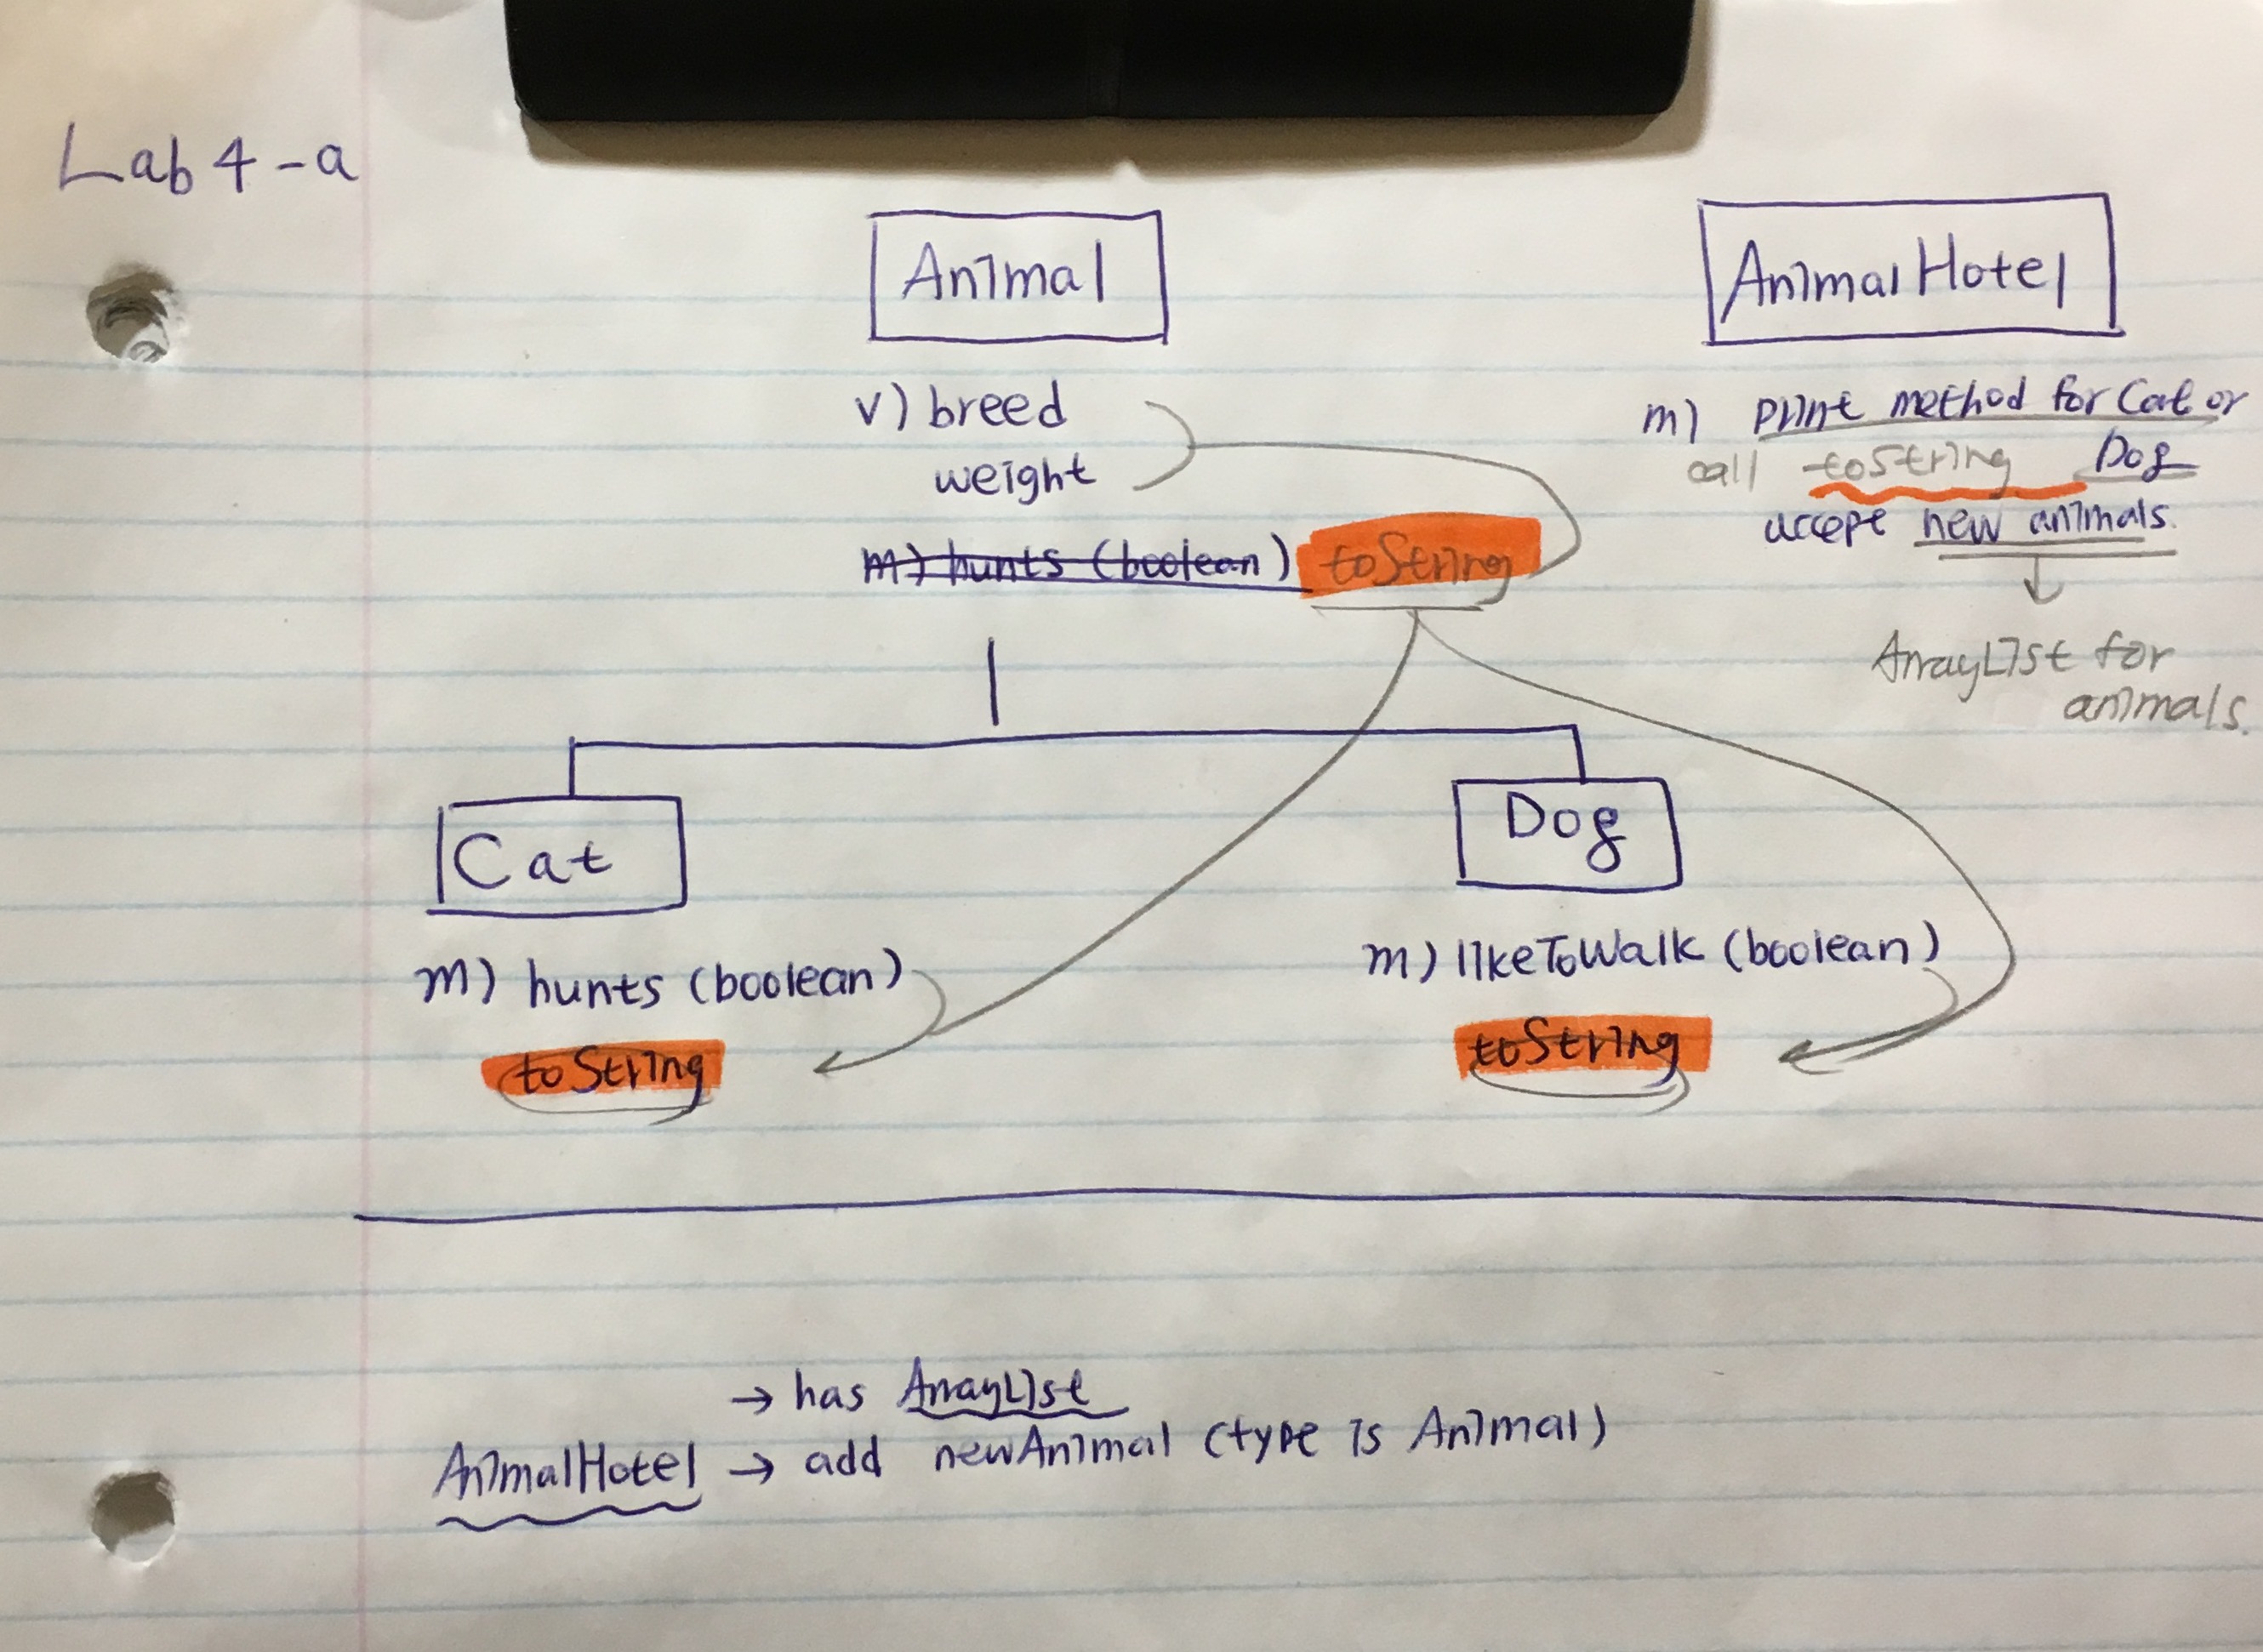 Lab 4-a
Animal
v) breed
weight
m) hunts (boolean) toString
AnimalHotel
m) print method for Cat or
call toString Dog
accept new animals.
ArrayList for
animals.
Cat
m) hunts (boolean)
toString
Dog
m) likeToWalk (boolean)
toString
→ has ArrayList
AnimalHotel → add newAnimal (type is Animal)